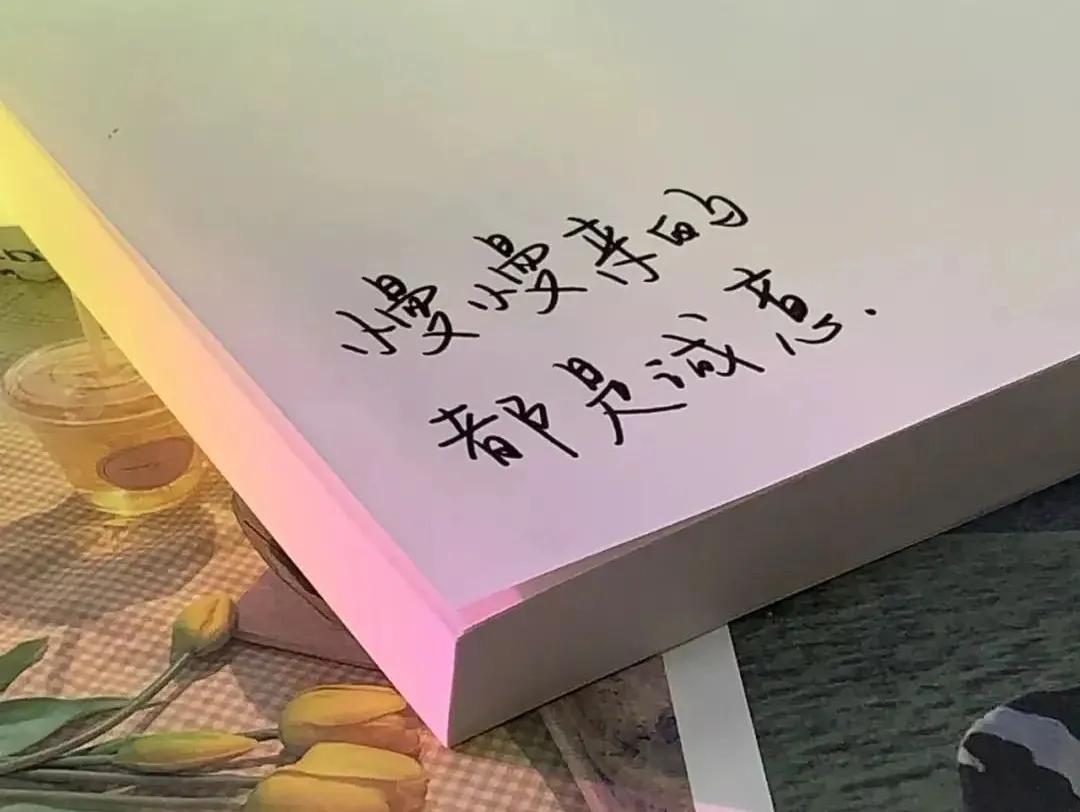 慢慢来的
都是诚意.